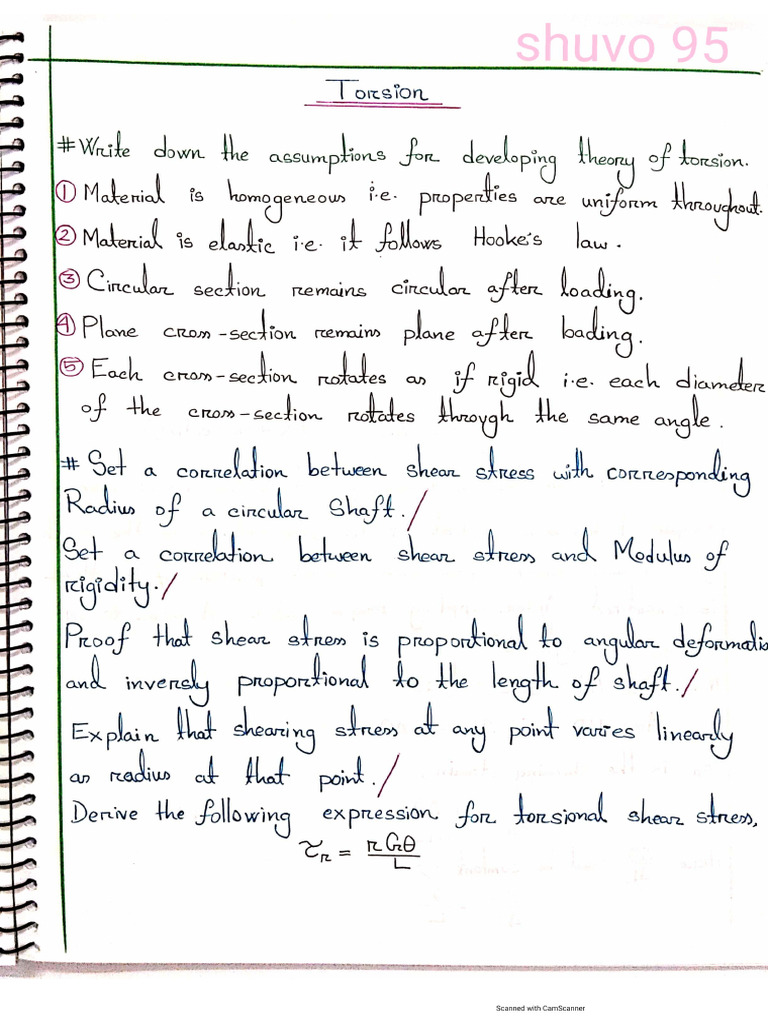 shuvo 95
Torsion
# Write down the assumptions for developing theory of torsion.
① Material is homogeneous i.e. properties are uniform throughout.
② Material is elastic i.e. it follows Hooke's law.
③ Circular section remains circular after loading.
④ Plane cross-section remains plane after loading.
⑤ Each cross-section rotates as if rigid i.e. each diameter
of the cross-section rotates through the same angle.
# Set a correlation between shear stress with corresponding
Radius of a circular Shaft./
Set a correlation between shear stress and Modulus of
rigidity./
Proof that shear stress is proportional to angular deformatio
and inversly proportional to the length of shaft./
Explain that shearing stress at any point varies linearly
as radius at that point./
Derive the following expression for torsional shear stress,
τr = rGθ/L
Scanned with CamScanner